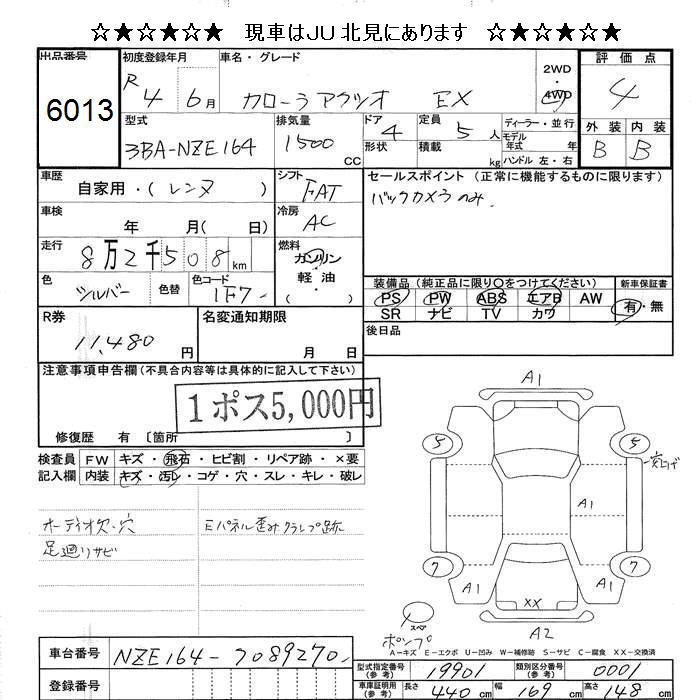 ☆★☆★☆★ 現車はJU北見にあります ☆★☆★☆★
出品番号 初度登録年月 車名・グレード 2WD・4WD 評価点
6013 R4 6月 カローラアクシオ EX 4
型式 排気量 ドア 4 定員 5人 ディーラー・並行 外装 内装
3BA-NZE164 1500 CC 形状 積載 kg モデル年式 年式 B B
ハンドル 左・右
車歴 自家用・(レンヌ) シフト FAT セールスポイント (正常に機能するものに限ります)
車検 年 月(日) 冷房 AC バックカメラのみ.
走行 8万2千508km 燃料 ガソリン・軽・油・( )
色 シルバー 色替 色コード 1F7 装備品 (純正品に限り○をつけてください) 新車保証書
PS PW ABS エアB AW 有・無
SR ナビ TV カワ
R券 11,480円 名変通知期限 月 日 後日品
注意事項申告欄 (不具合内容等は具体的に記入して下さい)
1ポス5,000円
修復歴 有 〔箇所 〕
検査員 FW キズ・飛石・ヒビ割・リペア跡・×要
記入欄 内装 キズ・汚レ・コゲ・穴・スレ・キレ・破レ
オーディオ欠・穴 Eパネル歪みクランプ跡
足廻リサビ
A1
5 5
A1
7 7
A1 A1
XX
スペ
ポンプ A2
A-キズ E-エクボ U-凹み W-補修跡 S-サビ C-腐食 XX-交換済
車台番号 NZE164-7089270 型式指定番号 (参考) 19901 類別区分番号 (参考) 0001
登録番号 車庫証明用 (参考) 長さ 440cm 幅 169cm 高さ 148cm